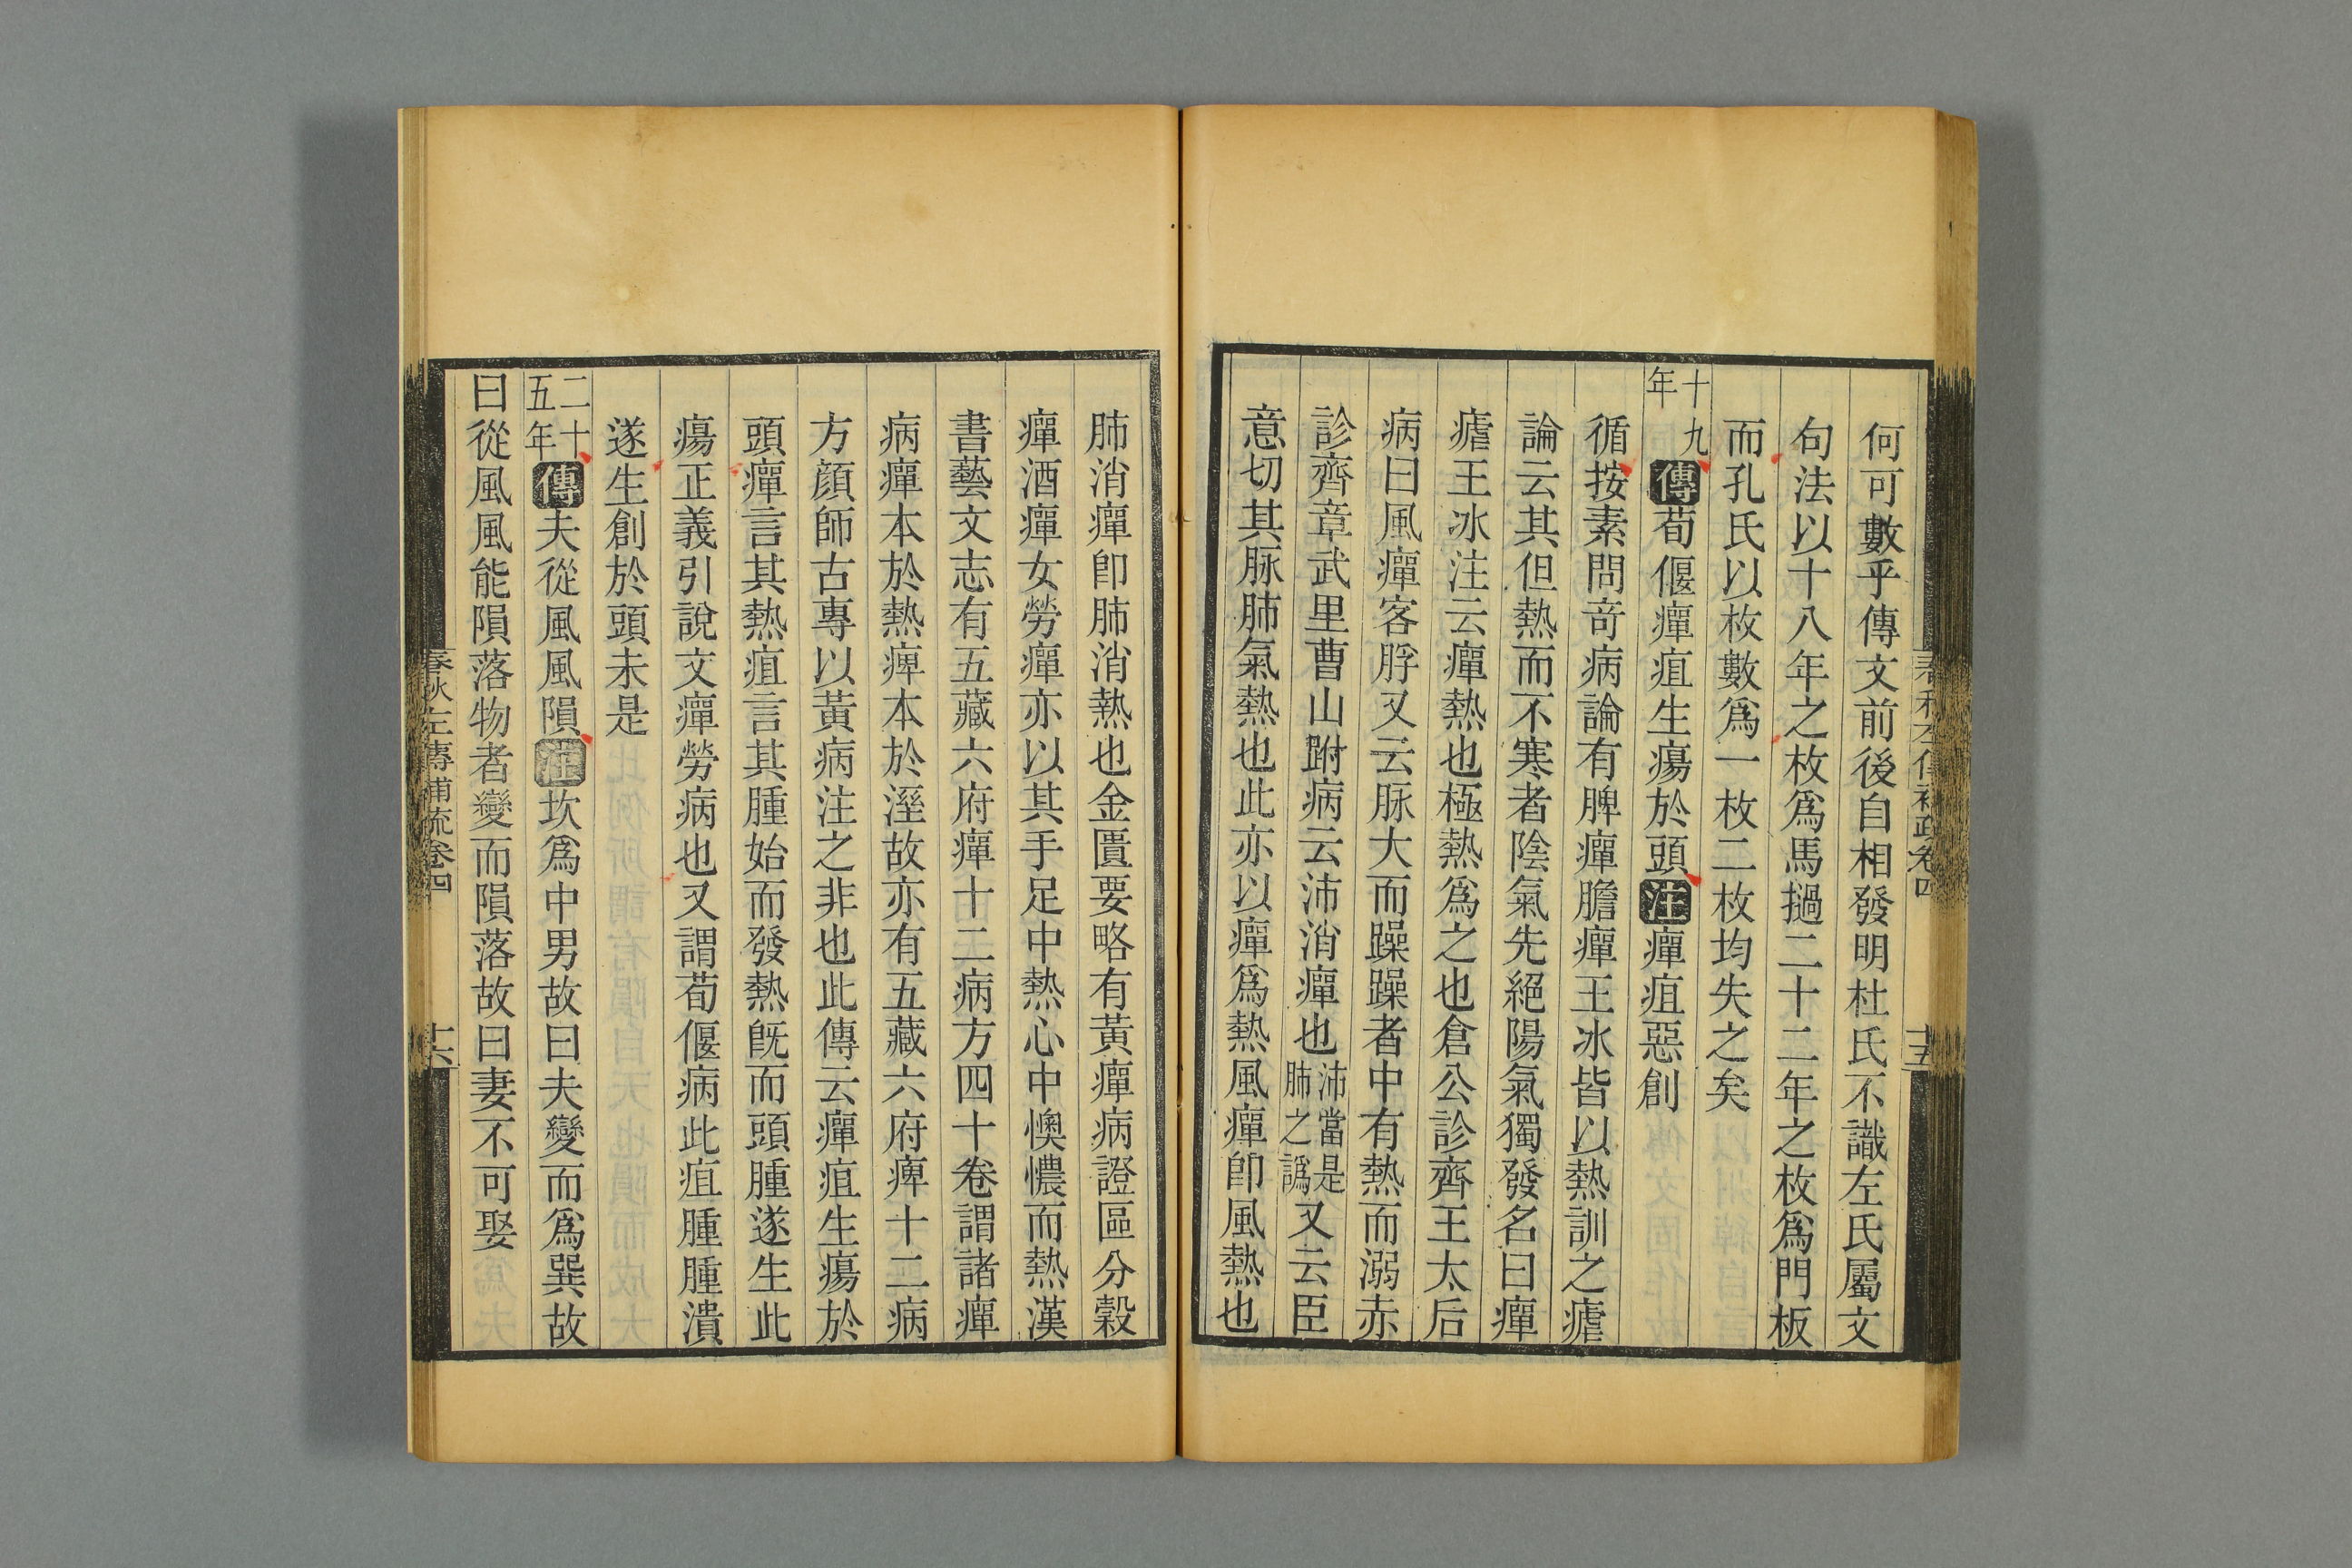 何可數乎傳文前後自相發明杜氏不識左氏屬文
句法以十八年之枚爲馬撾二十二年之枚爲門板
而孔氏以枚數爲一枚二枚均失之矣
十九年傳荀偃癉疽生瘍於頭注癉疽惡創
循按素問奇病論有脾癉膽癉王冰皆以熱訓之瘧
論云其但熱而不寒者陰氣先絕陽氣獨發名曰癉
瘧王冰注云癉熱也極熱爲之也倉公診齊王太后
病曰風癉客脬又云脉大而躁躁者中有熱而溺赤
診齊章武里曹山跗病云沛消癉也沛當是肺之譌又云臣
意切其脉肺氣熱也此亦以癉爲熱風癉卽風熱也
春秋左傳補疏卷四
十五
肺消癉卽肺消熱也金匱要略有黃癉病證區分穀
癉酒癉女勞癉亦以其手足中熱心中懊憹而熱漢
書藝文志有五藏六府癉十二病方四十卷謂諸癉
病癉本於熱痺本於溼故亦有五藏六府痺十二病
方顏師古專以黃病注之非也此傳云癉疽生瘍於
頭癉言其熱疽言其腫始而發熱旣而頭腫遂生此
瘍正義引說文癉勞病也又謂荀偃病此疽腫腫潰
遂生創於頭未是
二十五年傳夫從風風隕注坎爲中男故曰夫變而爲巽故
曰從風風能隕落物者變而隕落故曰妻不可娶
春秋左傳補疏卷四
十六